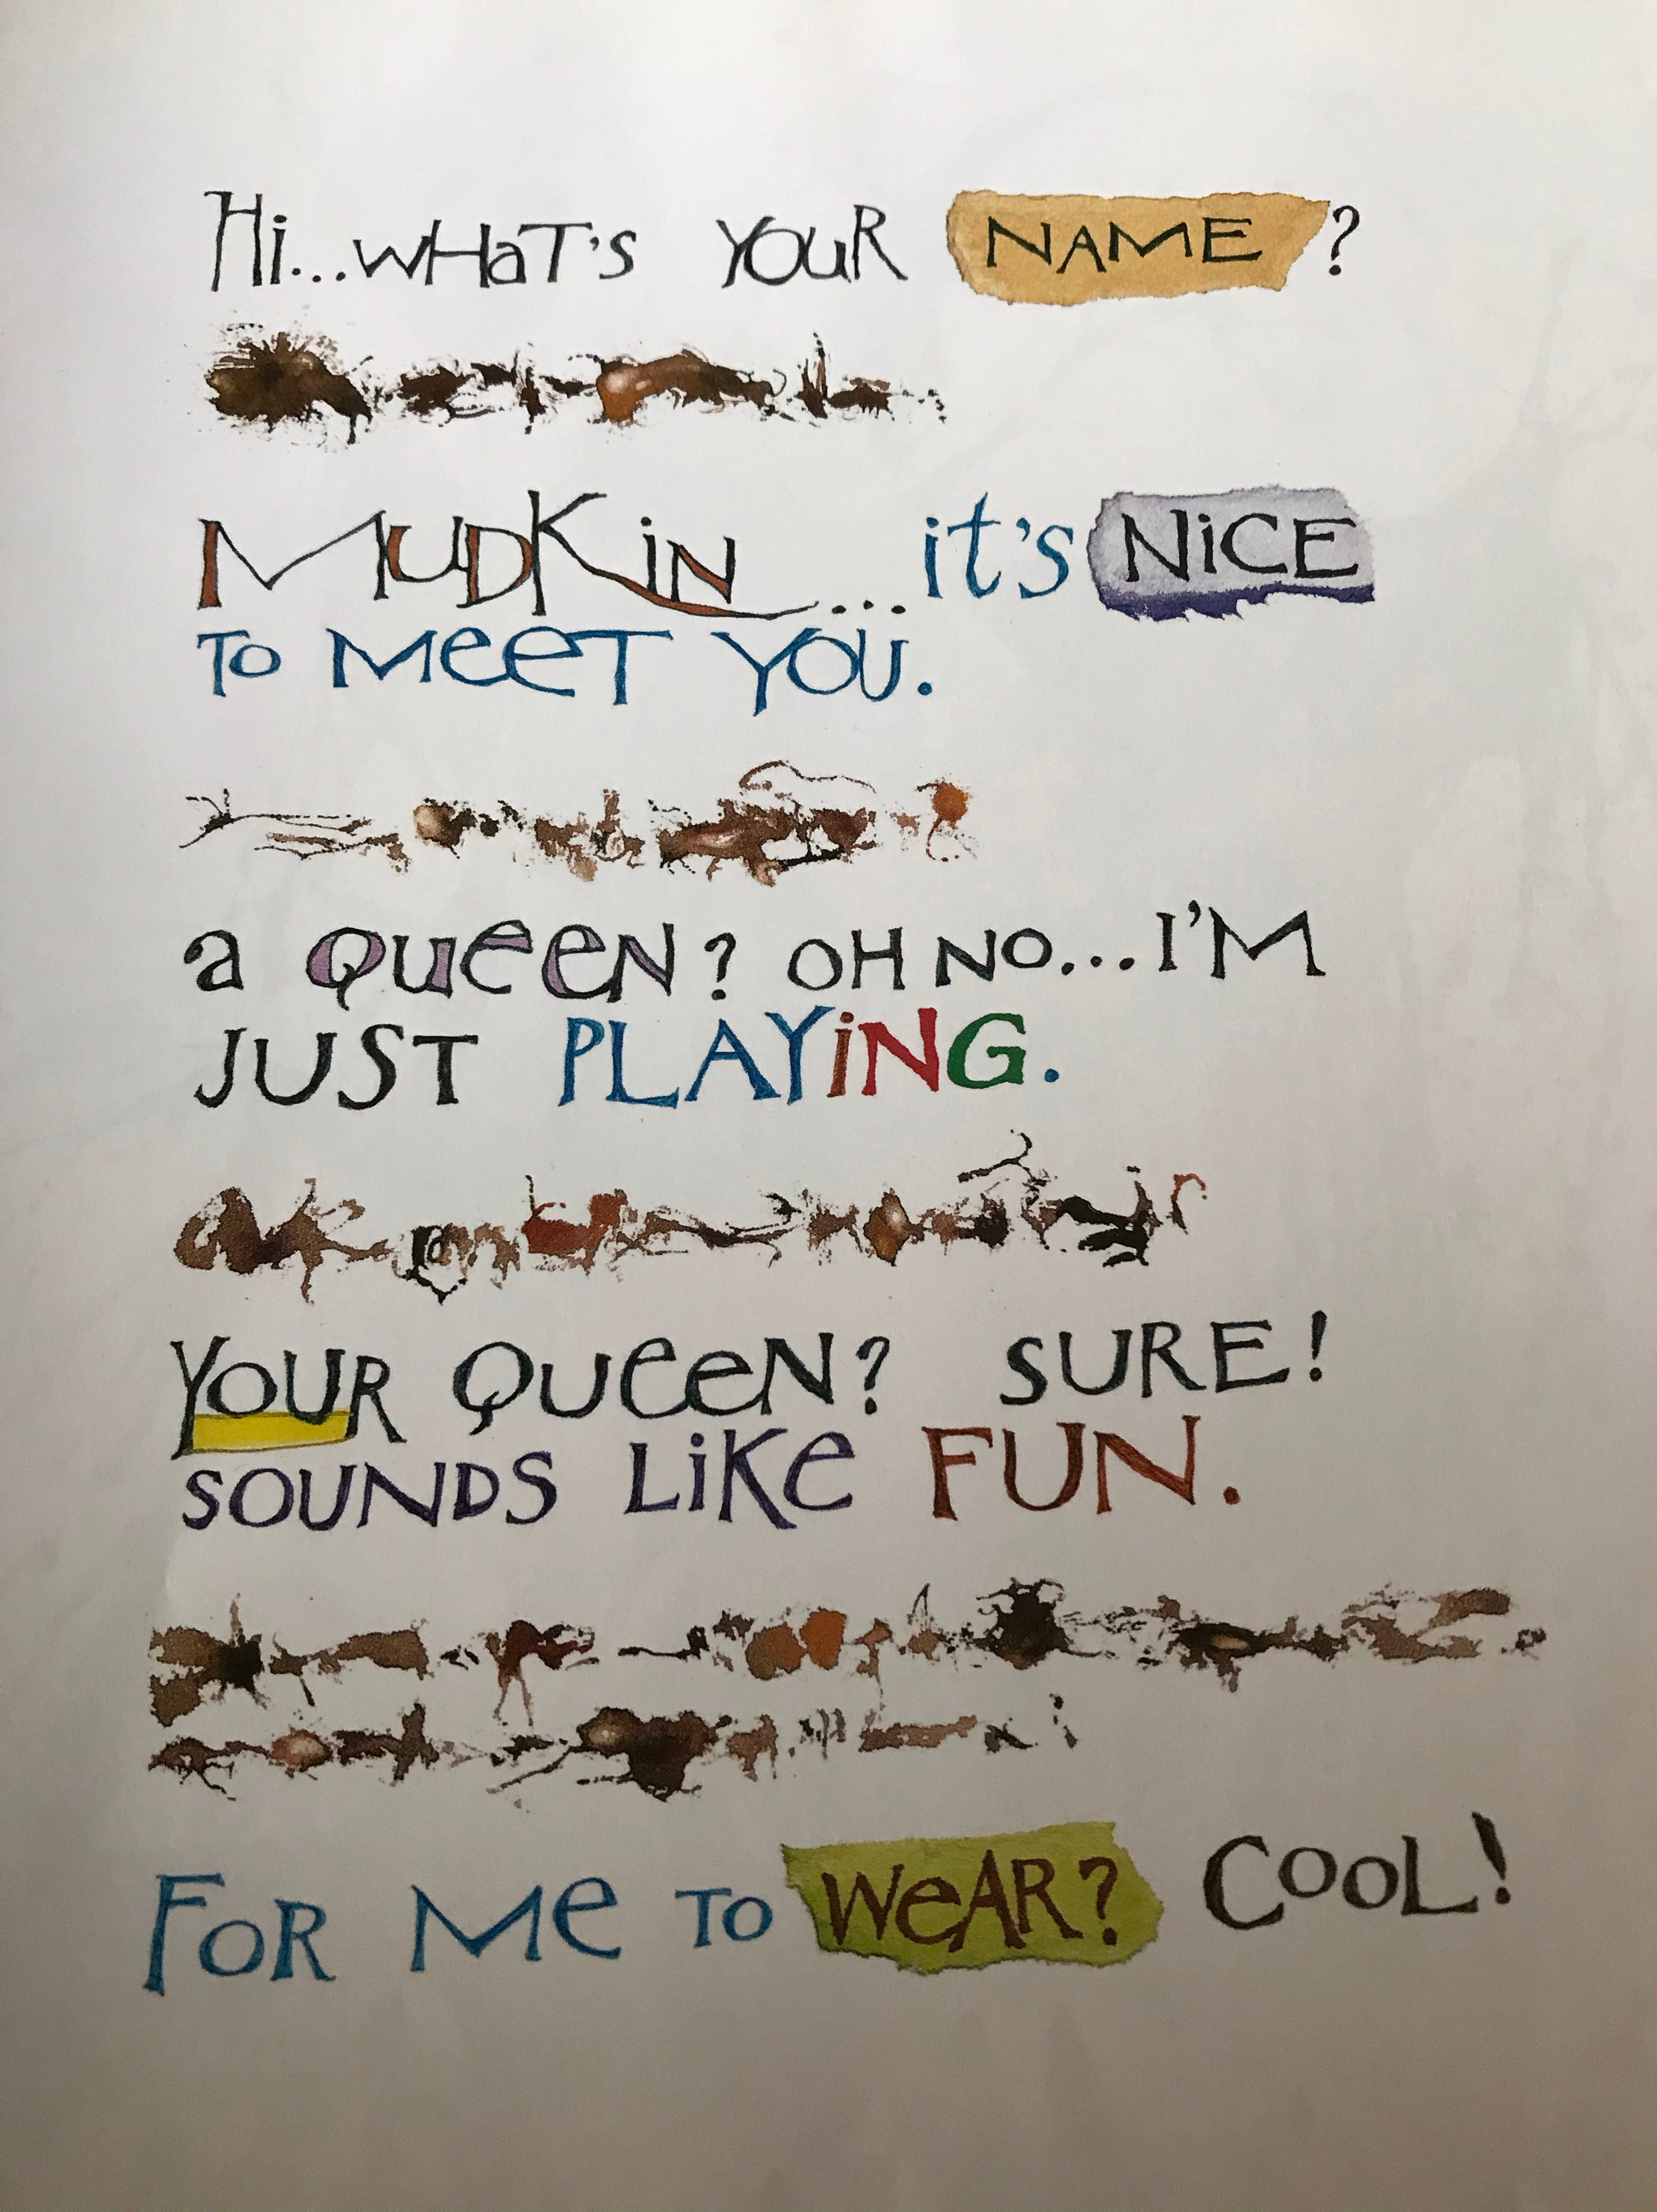 Hi...WHaT'S YOUR NAME?
MUDKiN...it's NiCE
TO MeeT YOU.
a QUeeN? OH NO...I'M
JUST PLAYiNG.
YOUR QUeeN? SURE!
SOUNDS LiKe FUN.
FOR Me TO WeAR? COOL!